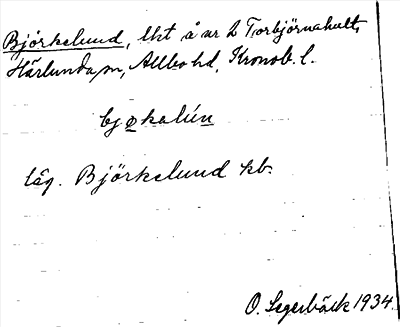 Björkelund, lht å nr 2 Torbjörnahult,
Härlunda sn, Allbo hd, Kronob. l.
bjøkalún
läg. Björkelund kb.
O. Segerbäck 1934.